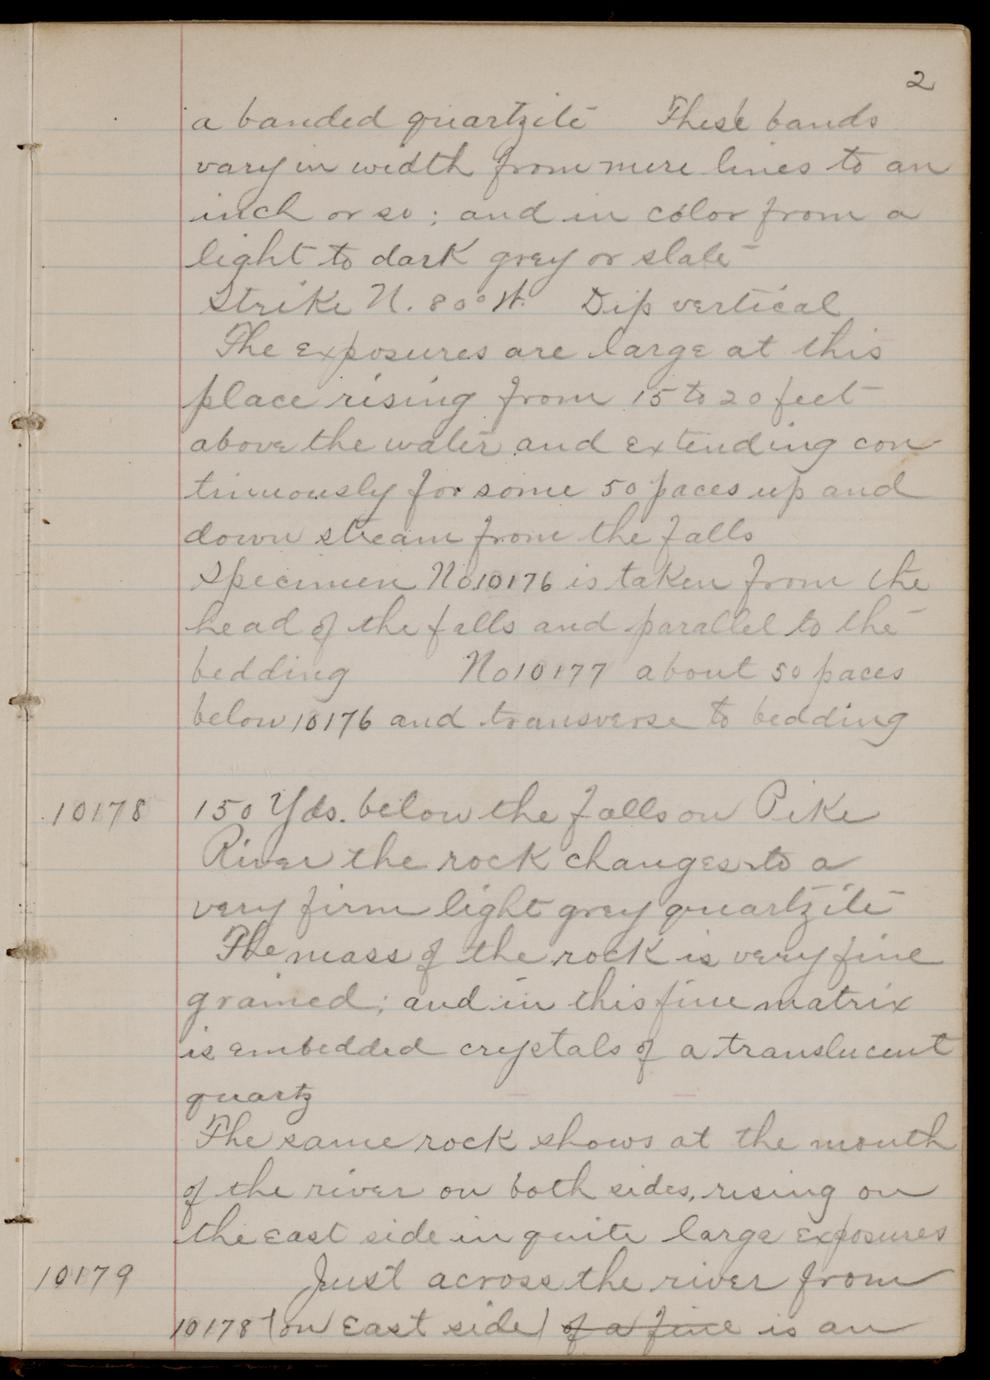 2
a banded quartzite These bands
vary in width from mere lines to an
inch or so; and in color from a
light to dark grey or slate
Strike N. 80° W. Dip vertical
The exposures are large at this
place rising from 15 to 20 feet
above the water and extending con-
tinuously for some 50 paces up and
down stream from the falls
Specimen No 10176 is taken from the
head of the falls and parallel to the
bedding No 10177 about 50 paces
below 10176 and transverse to bedding
10178 150 Yds. below the falls on Pike
River the rock changes to a
very firm light grey quartzite
The mass of the rock is very fine
grained; and in this fine matrix
is embedded crystals of a translucent
quartz
The same rock shows at the mouth
of the river on both sides, rising on
the east side in quite large exposures
10179 Just across the river from
10178 (on East side) of a fine is an